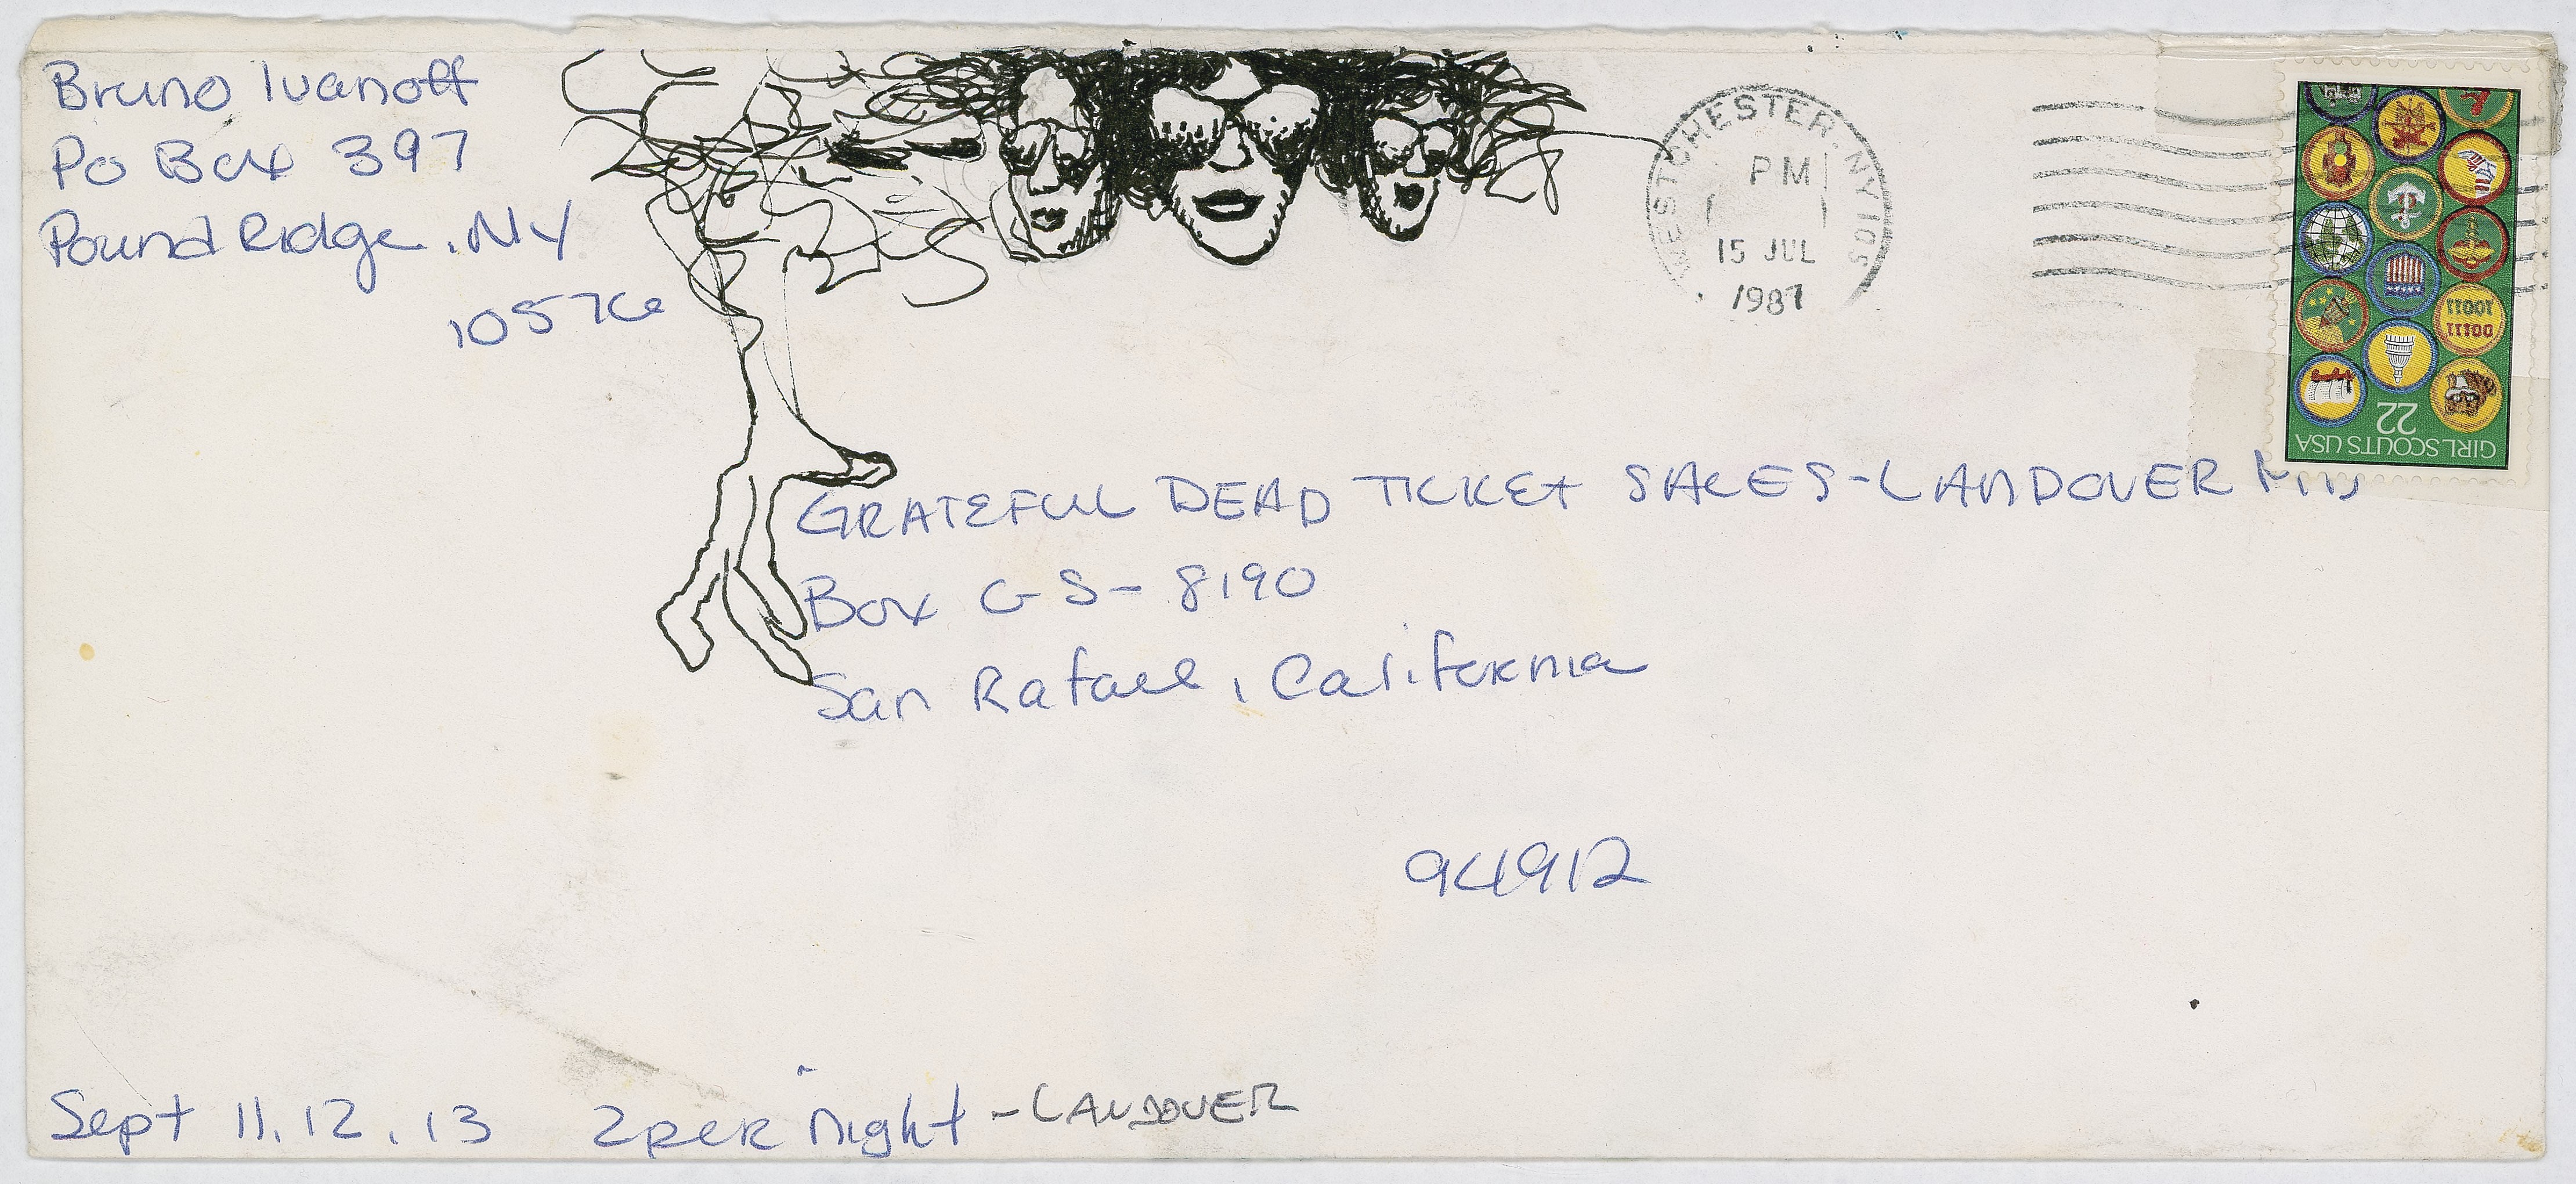 Bruno Ivanoff
Po Box 397
Pound Ridge, NY
10576
WESTCHESTER, NY 105
PM
15 JUL
1987
GIRL SCOUTS USA
22
GRATEFUL DEAD TICKET SALES-LANDOVER
Box GS-8190
San Rafael, California
94912
Sept 11, 12, 13 2 per night - LANDOVER